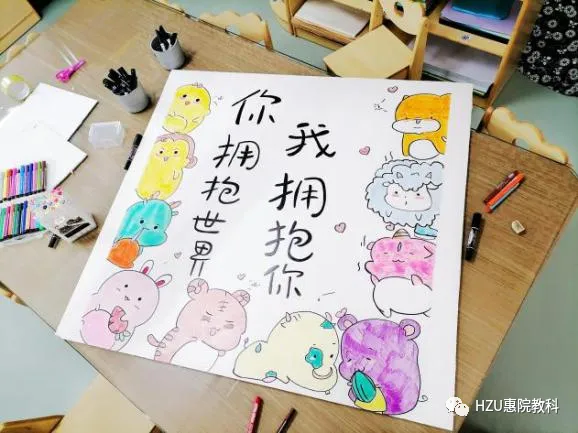 你拥抱世界
我拥抱你
HZU惠院教科